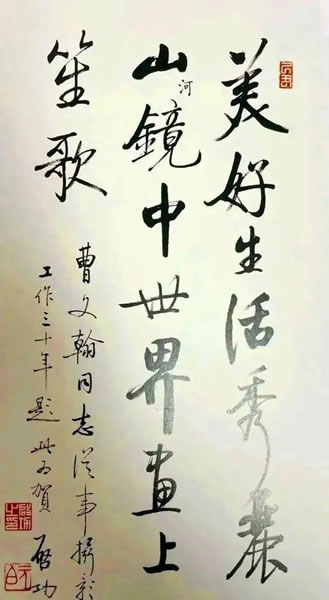 美好生活秀丽
山河镜中世界画上
笙歌
曹文翰同志从事摄影
工作三十年题此为贺 启功